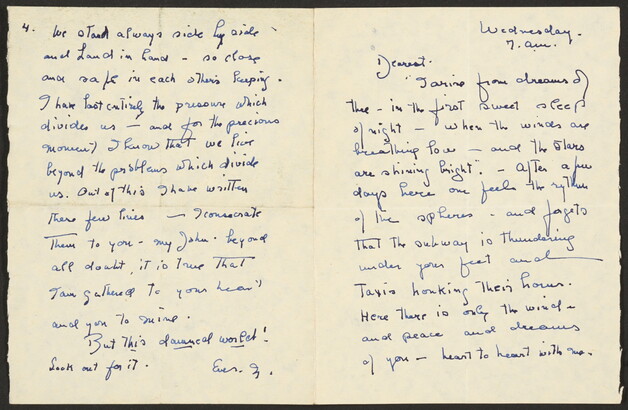 Wednesday.
7. a.m.
Dearest.
"I arise from dreams of
thee - in the first sweet sleep
of night - when the winds are
breathing low - and the stars
are shining bright". - After a few
days here one feels the rythm
of the spheres - and forgets
that the subway is thundering
under your feet and
Taxis honking their horns.
Here there is only the wind -
and peace and dreams
of you - heart to heart with me.
4.
We stand always side by side
and hand in hand - so close
and safe in each others keeping.
I have lost entirely the pressure which
divides us - and for the precious
moment I know that we live
beyond the problems which divide
us. Out of this I have written
these few lines - I consecrate
them to you - my John - beyond
all doubt, it is true that
I am gathered to your heart
and you to mine.
But this damned world!
Look out for it.